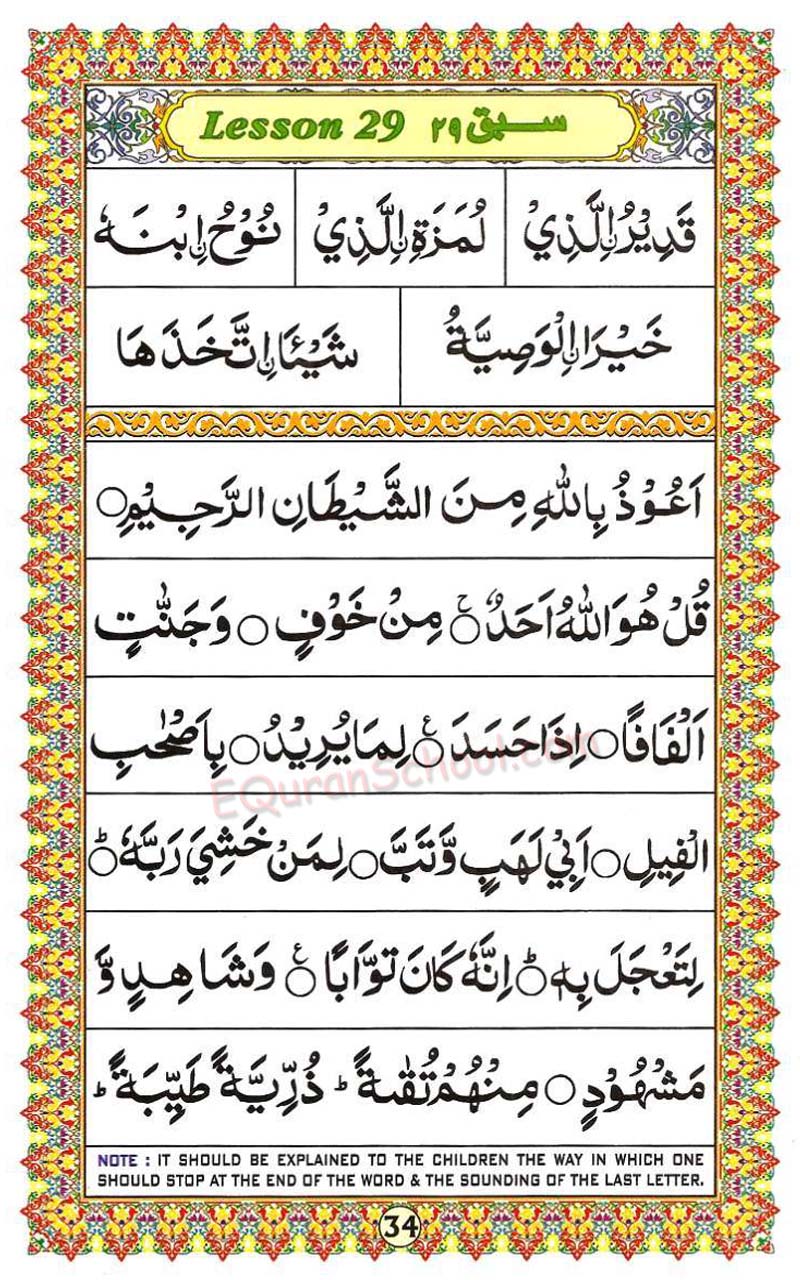 Lesson 29 سبق ۲۹
قَدِيْرُ ۨ الَّذِيْ لُمَزَةِ ۨ الَّذِيْ نُوْحُ ۨ ابْنَهٗ
خَيْرَا ۨ الْوَصِيَّةُ شَيْئَا ۨ اتَّخَذَهَا
اَعُوْذُ بِاللّٰهِ مِنَ الشَّيْطَانِ الرَّجِيْمِ○
قُلْ هُوَ اللّٰهُ اَحَدٌ○ۚ مِنْ خَوْفٍ○ وَجَنّٰتٍ
اَلْفَافًا○ اِذَا حَسَدَ○ع لِمَا يُرِيْدُ○ بِاَصْحٰبِ
الْفِيْلِ○ اَبِيْ لَهَبٍ وَّتَبَّ○ لِمَنْ خَشِيَ رَبَّهٗ○ؕ
لِتَعْجَلَ بِهٖ○ؕ اِنَّهٗ كَانَ تَوَّابًا○ع وَشَاهِدٍ وَّ
مَشْهُوْدٍ○ مِنْهُمْ تُقٰىةً ؕ ذُرِّيَّةً طَيِّبَةً ؕ
EQuranSchool.com
NOTE : IT SHOULD BE EXPLAINED TO THE CHILDREN THE WAY IN WHICH ONE
SHOULD STOP AT THE END OF THE WORD & THE SOUNDING OF THE LAST LETTER.
34